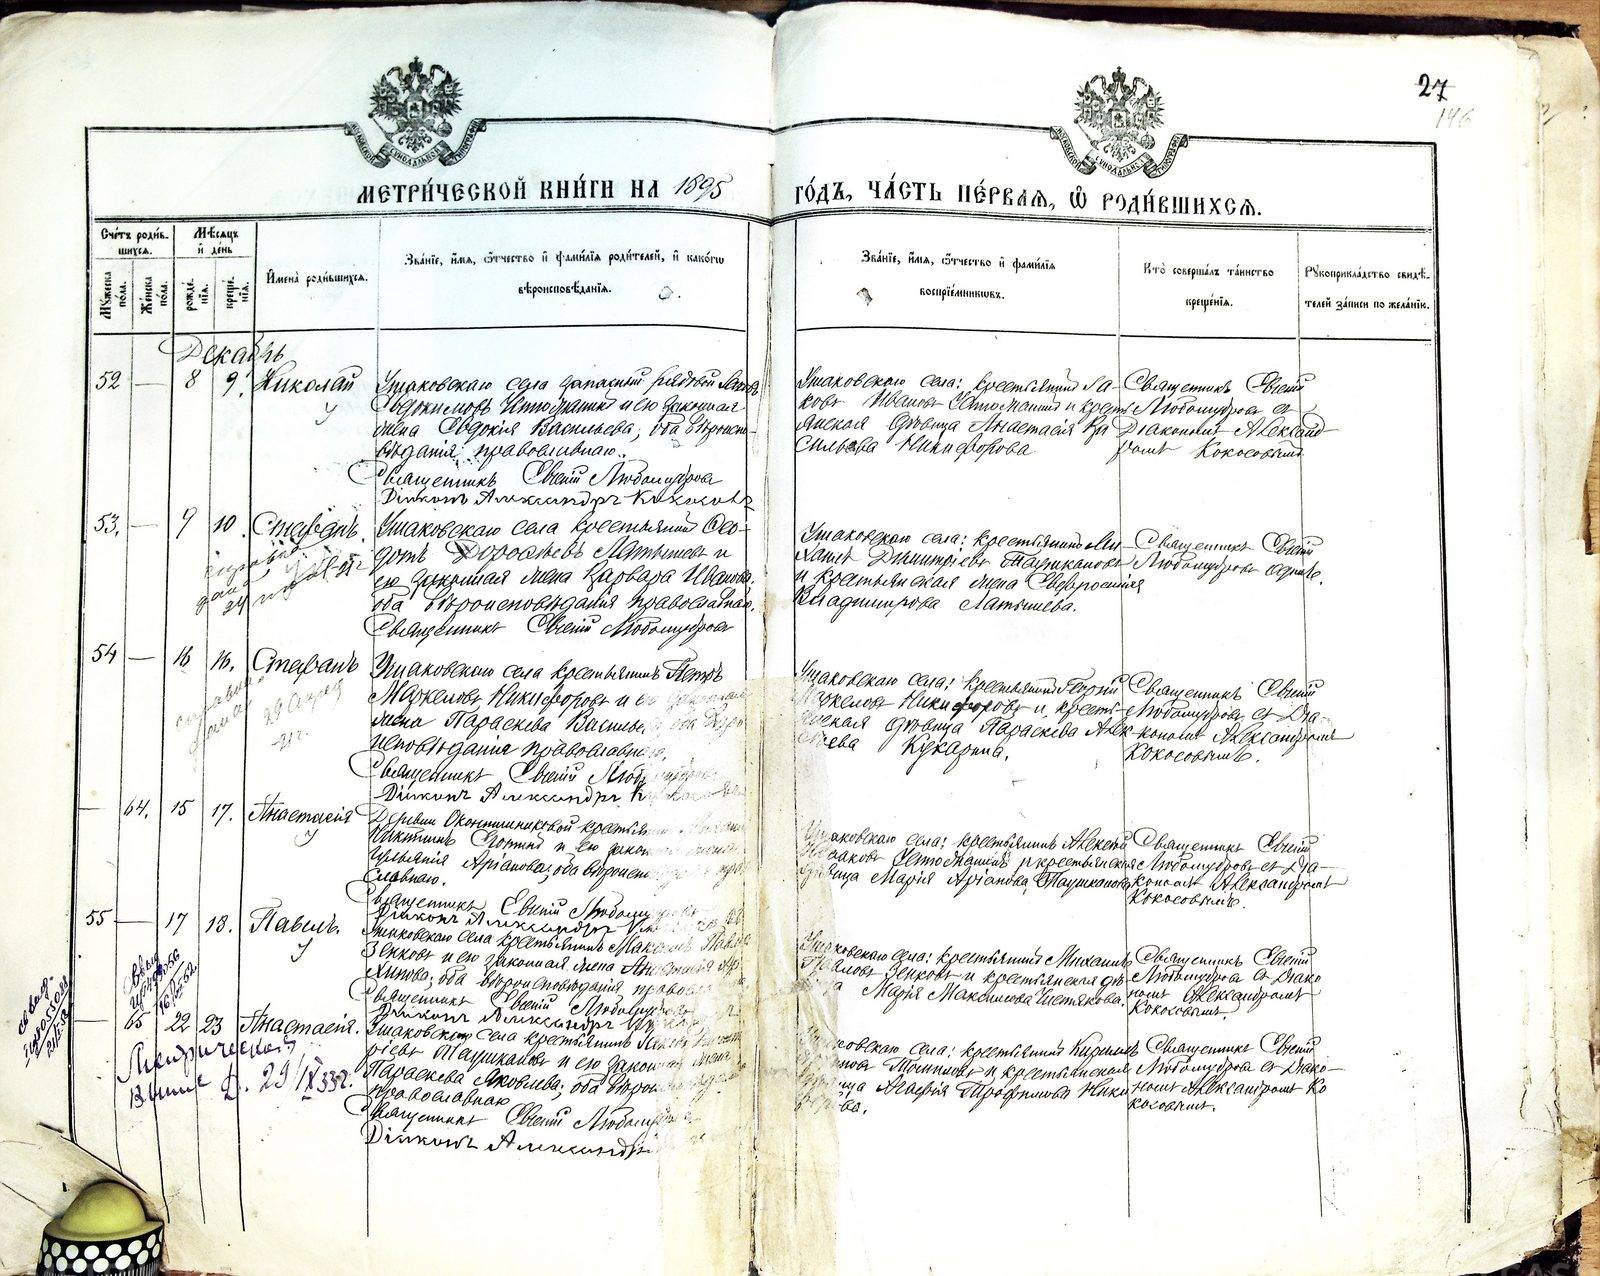 27
146
МЕТРИ́ЧЕСКОЙ КНИ́ГИ НА 1895
ГО́ДЪ, ЧА́СТЬ ПЕ́РВАЯ, Ѡ҆ РОДИ́ВШИХСЯ.
Сче́тъ роди́в-
шихся.
Му́жеска по́ла.
Же́нска по́ла.
Мѣ́сяцъ и҆ де́нь
рожде́нїя.
креще́нїя.
И҆мена̀ роди́вшихся.
Зва́нїе, и҆́мя, ѻ҆́тчество и҆ фами́лїя роди́телей, и҆ како́гѡ
вѣроисповѣ́данїя.
Зва́нїе, и҆́мя, ѻ҆́тчество и҆ фами́лїя
воспрїе́мникѡвъ.
Кто̀ соверша́лъ та́инство
креще́нїя.
Рукоприкла́дство свидѣ́-
телей за́писи по жела́нїю.
Декабрь
52 — 8 9. Николай
Ушаковскаго села запасный рядовой Іаковъ
Евдокимовъ и его законная
жена Евдокія Васильева; оба вѣроиспо-
вѣданія православнаго.
Священникъ Евгеній Любомудровъ
Діаконъ Александръ Кокосовъ
Ушаковскаго села: крестьянинъ Іа-
ковъ Ивановъ и кресть-
янская дѣвица Анастасія Ва-
сильева Никифорова
Священникъ Евгеній
Любомудровъ съ
Діакономъ Александ-
ромъ Кокосовымъ
53. — 9 10. Стефанъ.
Ушаковскаго села крестьянинъ Ѳео-
дотъ Дороѳеевъ Латышевъ и
его законная жена Варвара Иванова
оба вѣроисповѣданія православнаго.
Священникъ Евгеній Любомудровъ
Ушаковскаго села: крестьянинъ Ми-
хаилъ Димитріевъ Таушкановъ
и крестьянская жена Евфросинія
Владимирова Латышева.
Священникъ Евгеній
Любомудровъ одинъ.
54 — 16 16. Стефанъ
Ушаковскаго села крестьянинъ Петръ
Маркеловъ Никифоровъ и его законная
жена Параскева Васильева оба вѣро
исповѣданія православнаго.
Священникъ Евгеній
Діаконъ Александръ
Ушаковскаго села: крестьянинъ Георгій
Маркеловъ Никифоровъ и кресть-
янская дѣвица Параскева Алек-
сѣева Кукарина.
Священникъ Евгеній
Любомудровъ съ Діа-
кономъ Александромъ
Кокосовымъ.
— 64. 15 17. Анастасія
Деревни крестьянинъ
и его законная
Арианова; оба
славнаго.
Священникъ Евгеній Любомудровъ
Діаконъ Александръ
Ушаковскаго села: крестьянинъ Алексѣй
и крестьянская
дѣвица Марія Арианова Таушканова
Священникъ Евгеній
Любомудровъ съ Діа-
кономъ Александромъ
Кокосовымъ.
55 — 17 18. Павелъ.
Ушаковскаго села крестьянинъ Максимъ Павловъ
Зенковъ и его законная жена Анастасія
оба вѣроисповѣданія
Священникъ Евгеній Любомудровъ
Діаконъ Александръ
Ушаковскаго села: крестьянинъ Михаилъ
Павловъ Зенковъ и крестьянская дѣ-
вица Марія Максимова Чистякова.
Священникъ Евгеній
Любомудровъ съ Діако-
номъ Александромъ
Кокосовымъ.
— 65 22 23 Анастасія.
Ушаковскаго села крестьянинъ
Таушкановъ и его законная жена
Параскева Яковлева; оба
православнаго
Священникъ Евгеній Любомудровъ
Діаконъ Александръ
Ушаковскаго села: крестьянинъ Кириллъ
и крестьянская
дѣвица Агафія Трофимова Ники
форова.
Священникъ Евгеній
Любомудровъ съ Діако-
номъ Александромъ Ко
косовымъ.
29/IX 33 г.